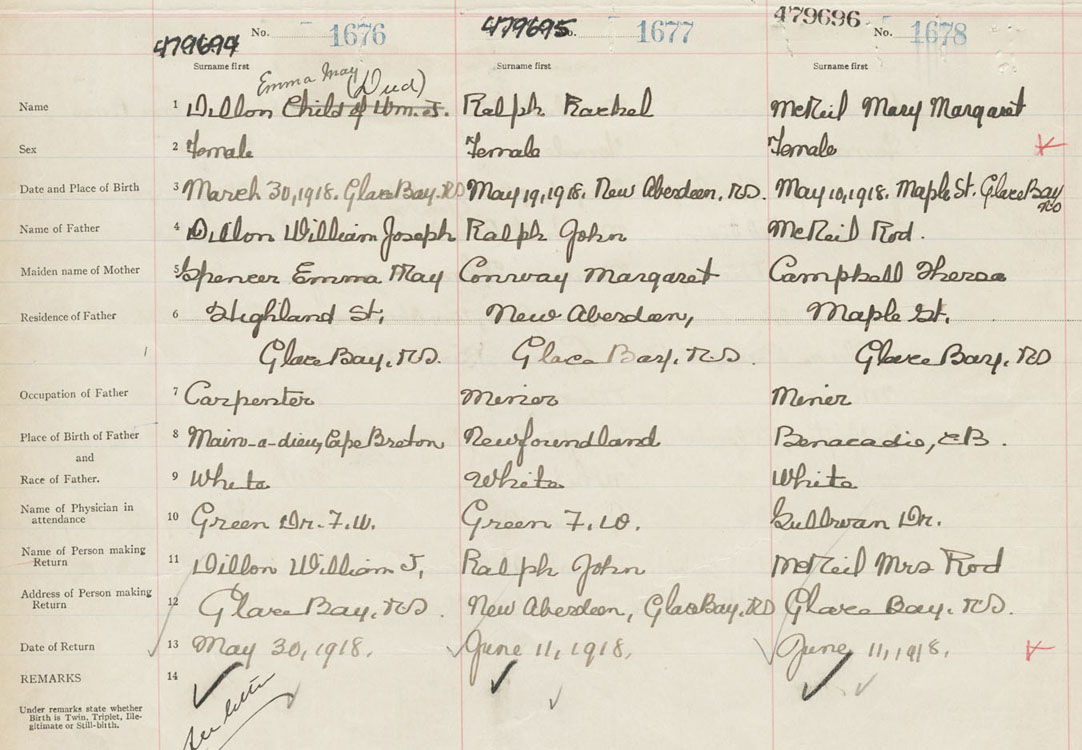 479694 No. 1676 479695 No. 1677 479696 No. 1678
Surname first Surname first Surname first
Emma May (Dud)
Name 1 Dillon Child of Wm. J. Ralph Rachel McNeil Mary Margaret
Sex 2 Female Female Female
Date and Place of Birth 3 March 30, 1918. Glace Bay. N.S May 19, 1918. New Aberdeen, N.S. May 10, 1918. Maple St. Glace Bay NS
Name of Father 4 Dillon William Joseph Ralph John McNeil Rod.
Maiden name of Mother 5 Spencer Emma May Conway Margaret Campbell Theresa
Residence of Father 6 Highland St, New Aberdeen, Maple St.
Glace Bay, N.S. Glace Bay, N.S. Glace Bay, N.S
Occupation of Father 7 Carpenter Miner Miner
Place of Birth of Father 8 Main-a-dieu, Cape Breton Newfoundland Benacadie, C.B.
and
Race of Father. 9 White White White
Name of Physician in
attendance 10 Green Dr. F. W. Green F. W. Sullivan Dr.
Name of Person making
Return 11 Dillon William J, Ralph John McNeil Mrs Rod
Address of Person making
Return 12 Glace Bay, N.S. New Aberdeen, Glace Bay, N.S Glace Bay, N.S.
Date of Return 13 May 30, 1918. June 11, 1918. June 11, 1918.
REMARKS 14
See letter
Under remarks state whether
Birth is Twin, Triplet, Ille-
gitimate or Still-birth.